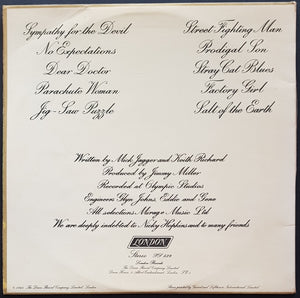 Sympathy for the Devil
No Expectations
Dear Doctor
Parachute Woman
Jig-Saw Puzzle
Street Fighting Man
Prodigal Son
Stray Cat Blues
Factory Girl
Salt of the Earth
Written by Mick Jagger and Keith Richard
Produced by Jimmy Miller
Recorded at Olympic Studios
Engineers Glyn Johns, Eddie and Gene
All selections Mirage Music Ltd
We are deeply indebted to Nicky Hopkins and to many friends
LONDON
Stereo PS 539
London Records
The Decca Record Company Limited